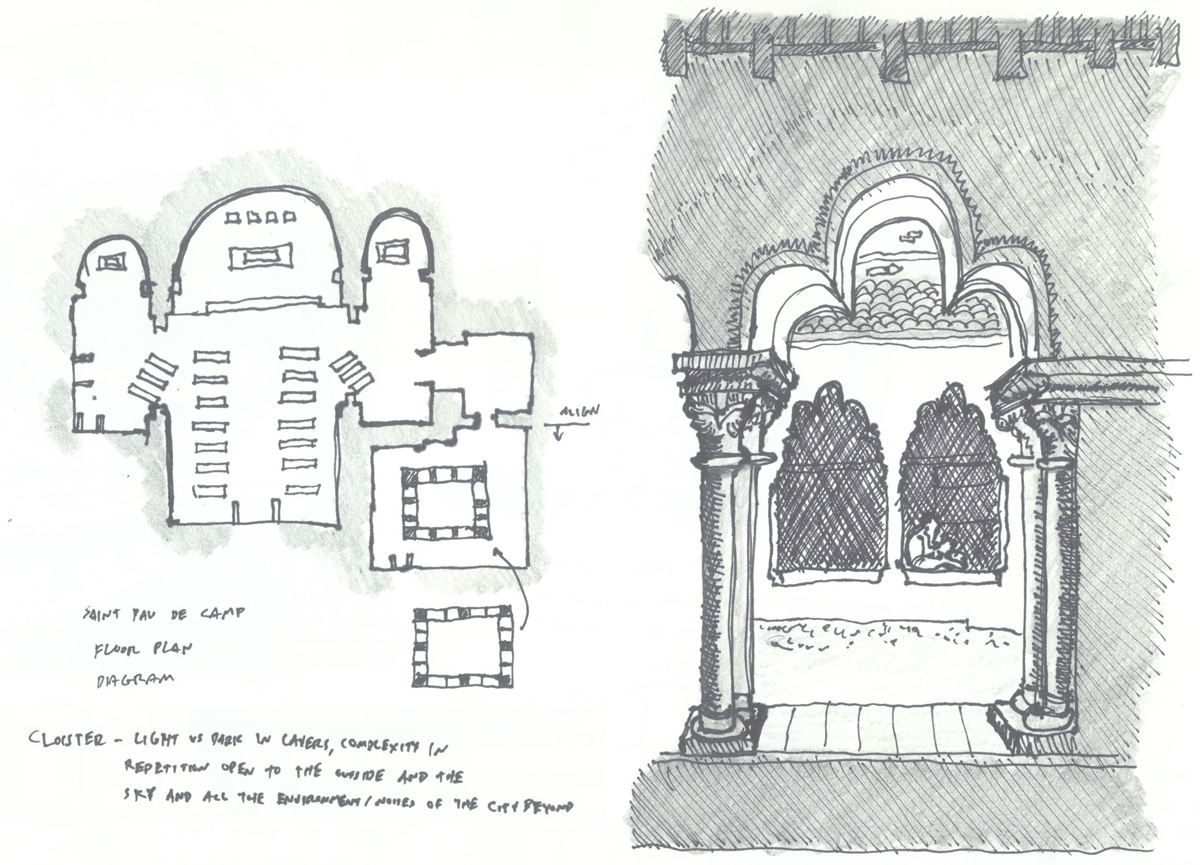 ALIGN
SAINT PAU DE CAMP
FLOOR PLAN
DIAGRAM
CLOISTER - LIGHT VS DARK IN LAYERS, COMPLEXITY IN
REPETITION OPEN TO THE OUTSIDE AND THE
SKY AND ALL THE ENVIRONMENT/NOISES OF THE CITY BEYOND